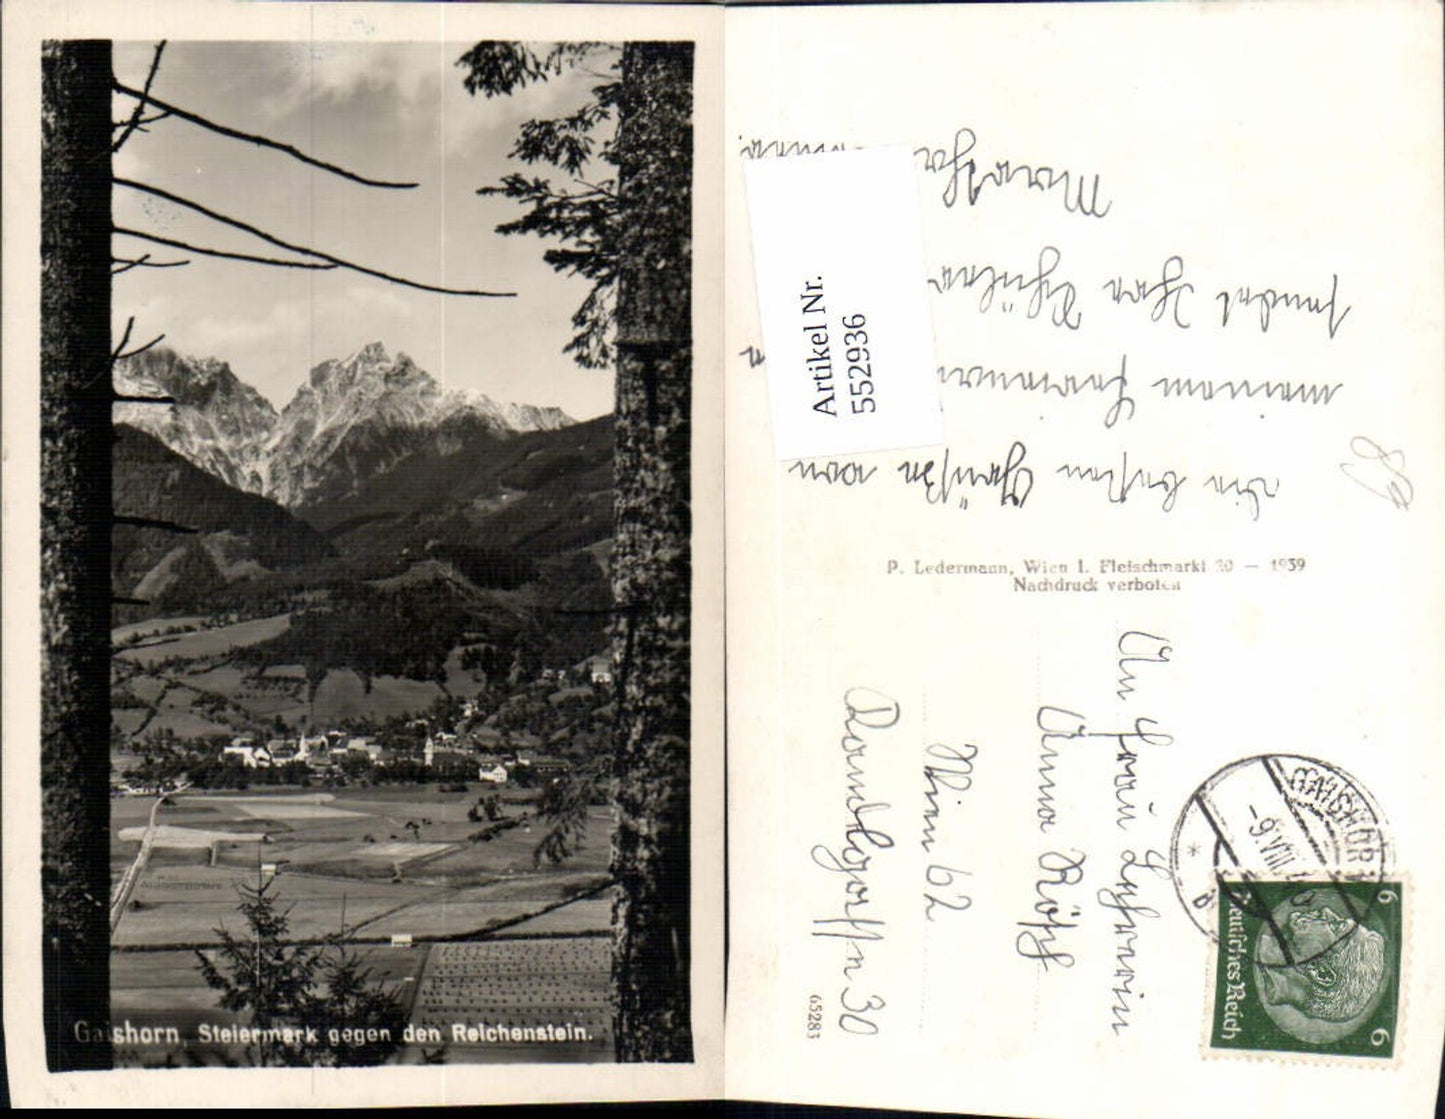 Gaishorn, Steiermark gegen den Reichenstein.
Artikel Nr.
552936
die besten Grüßen von
meinem
sendet Ihre Schülerin
Martha
89
P. Ledermann, Wien I. Fleischmarkt 20 — 1939
Nachdruck verboten
An Frau Lehrerin
Anna
Wien 62
30
65283
GAISHORN
-9.VIII.
* b
6
6
Deutsches Reich